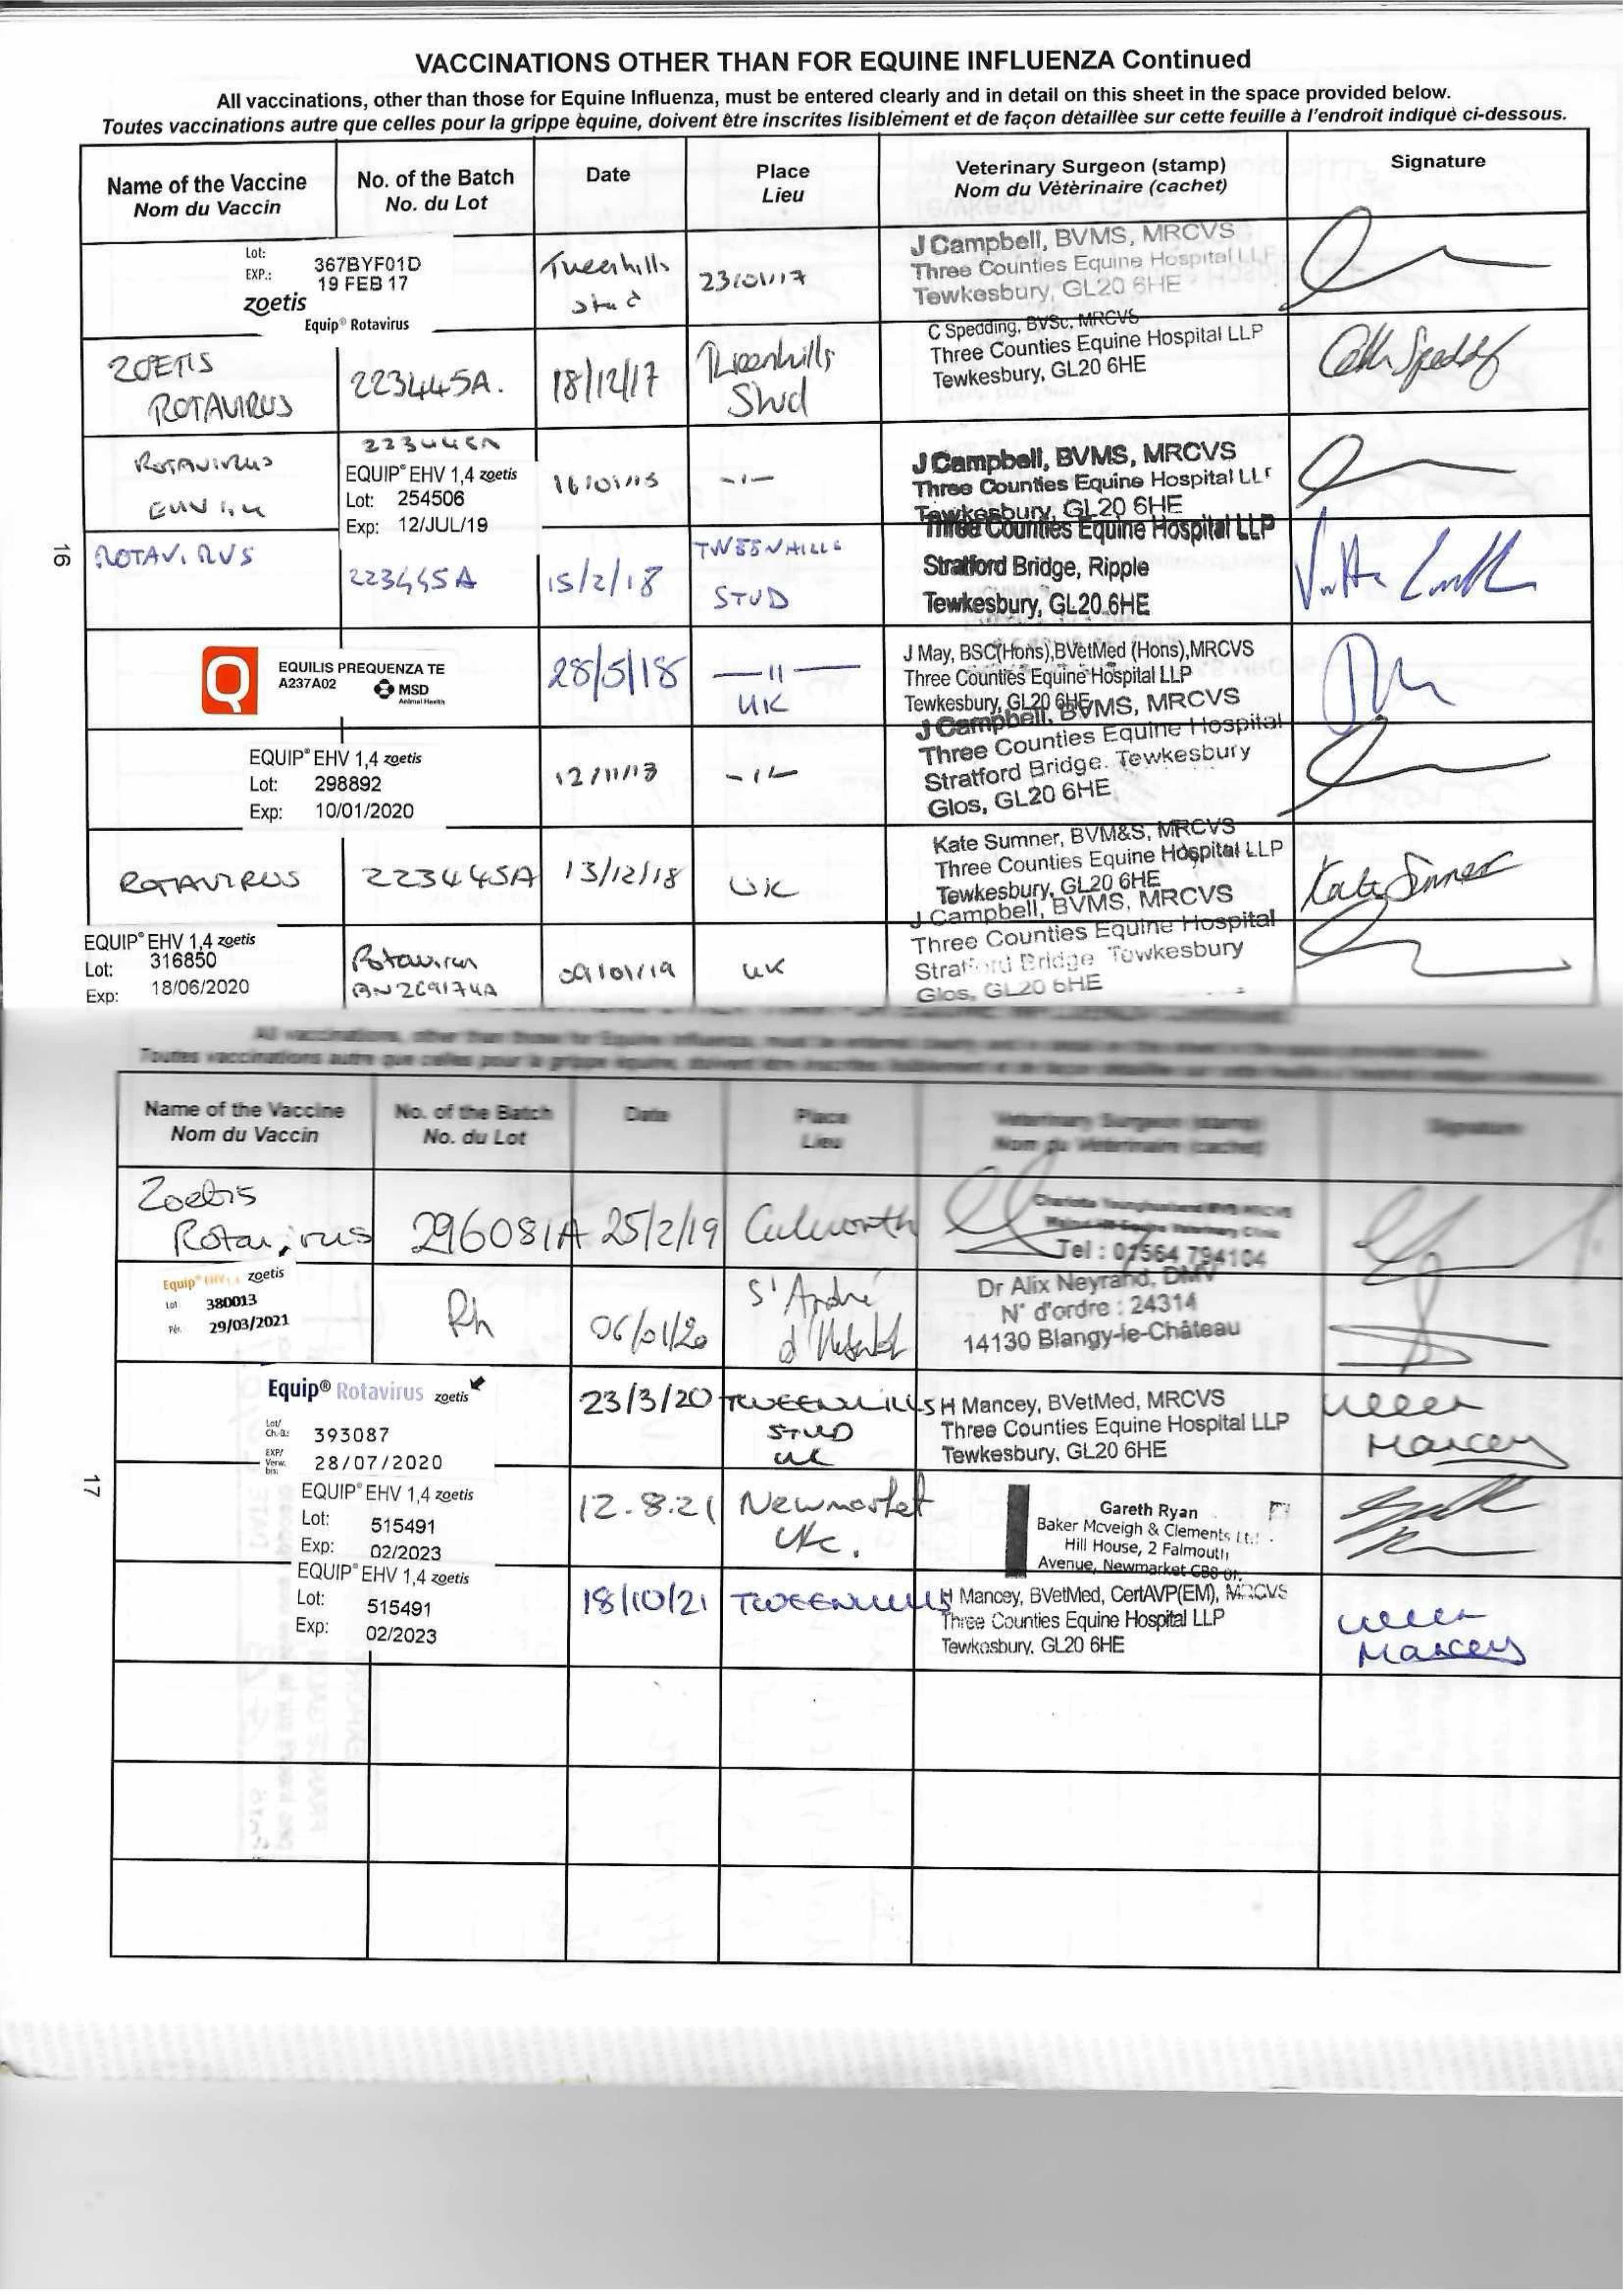 VACCINATIONS OTHER THAN FOR EQUINE INFLUENZA Continued
All vaccinations, other than those for Equine Influenza, must be entered clearly and in detail on this sheet in the space provided below.
Toutes vaccinations autre que celles pour la grippe èquine, doivent ètre inscrites lisiblement et de façon dètaillèe sur cette feuille à l'endroit indiquè ci-dessous.
Name of the Vaccine
Nom du Vaccin
No. of the Batch
No. du Lot
Date
Place
Lieu
Veterinary Surgeon (stamp)
Nom du Vètèrinaire (cachet)
Signature
Lot: 367BYF01D
EXP.: 19 FEB 17
zoetis
Equip® Rotavirus
Tweenhills
Stud
23/01/17
J Campbell, BVMS, MRCVS
Three Counties Equine Hospital LLP
Tewkesbury, GL20 6HE
ZOETIS
ROTAVIRUS
223445A.
18/12/17
Tweenhills
Stud
C Spedding, BVSc, MRCVS
Three Counties Equine Hospital LLP
Tewkesbury, GL20 6HE
ROTAVIRUS
EHV 1,4
223445A
EQUIP® EHV 1,4 zoetis
Lot: 254506
Exp: 12/JUL/19
-11-
J Campbell, BVMS, MRCVS
Three Counties Equine Hospital LLP
Tewkesbury, GL20 6HE
16
ROTAVIRUS
223445A
15/2/18
TWEENHILLS
STUD
Three Counties Equine Hospital LLP
Stratford Bridge, Ripple
Tewkesbury, GL20 6HE
EQUILIS PREQUENZA TE
A237A02
MSD
Animal Health
28/5/18
—11—
UK
J May, BSC(Hons),BVetMed (Hons),MRCVS
Three Counties Equine Hospital LLP
Tewkesbury, GL20 6HE
EQUIP® EHV 1,4 zoetis
Lot: 298892
Exp: 10/01/2020
-11-
J Campbell, BVMS, MRCVS
Three Counties Equine Hospital
Stratford Bridge. Tewkesbury
Glos, GL20 6HE
ROTAVIRUS
223445A
13/12/18
UK
Kate Sumner, BVM&S, MRCVS
Three Counties Equine Hospital LLP
Tewkesbury, GL20 6HE
Kate Sumner
EQUIP® EHV 1,4 zoetis
Lot: 316850
Exp: 18/06/2020
Rotavirus
BN 269174A
09/01/19
UK
J Campbell, BVMS, MRCVS
Three Counties Equine Hospital
Stratford Bridge Tewkesbury
Glos, GL20 6HE
All vaccinations, other than those for Equine Influenza, must be entered clearly and in detail on this sheet in the space provided below.
Toutes vaccinations autre que celles pour la grippe èquine, doivent ètre inscrites
Name of the Vaccine
Nom du Vaccin
No. of the Batch
No. du Lot
Date
Place
Lieu
Veterinary Surgeon (stamp)
Nom du Vètèrinaire (cachet)
Signature
Zoetis
Rotavirus
296081A
25/2/19
Culworth
Tel : 07564 794104
Equip® EHV zoetis
Lot 380013
Pér. 29/03/2021
Rh
06/01/20
S' André
Dr Alix Neyrand, DMV
N° d'ordre : 24314
14130 Blangy-le-Château
Equip® Rotavirus zoetis
Lot/
Ch.-B.: 393087
EXP/
Verw.
bis: 28/07/2020
23/3/20
TWEENHILLS
STUD
UK
H Mancey, BVetMed, MRCVS
Three Counties Equine Hospital LLP
Tewkesbury. GL20 6HE
Mancey
17
EQUIP® EHV 1,4 zoetis
Lot: 515491
Exp: 02/2023
12.8.21
Newmarket
UK.
Gareth Ryan
Baker Mcveigh & Clements Lt.
Hill House, 2 Falmouth
Avenue, Newmarket CB8
EQUIP® EHV 1,4 zoetis
Lot: 515491
Exp: 02/2023
18/10/21
TWEENHILLS
H Mancey, BVetMed, CertAVP(EM), MRCVS
Three Counties Equine Hospital LLP
Tewkesbury. GL20 6HE
Mancey